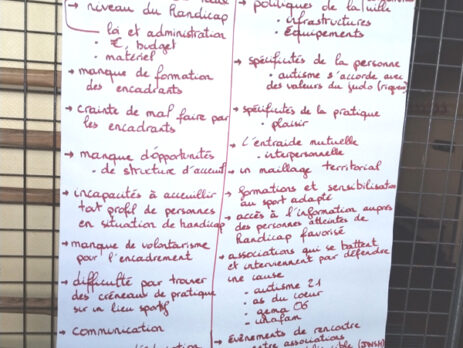 → niveau du handicap
loi et administration
• €, budget
• matériel
→ manque de formation
des encadrants
→ crainte de mal faire par
les encadrants
→ manque d'opportunités
• de structure d'accueil
→ incapacités à accueillir
tout profil de personnes
en situation de handicap
→ manque de volontarisme
pour l'encadrement
→ difficulté par trouver
des créneaux de pratique
sur un lieu sportif
→ communication
→ politiques de la ville
• infrastructures
• équipements
→ spécificités de la personne
• autisme s'accorde avec
des valeurs du judo (rigueur)
→ spécificités de la pratique
• plaisir
→ l'entraide mutuelle
• interpersonnelle
→ un maillage territorial
→ formations et sensibilisation
au sport adapté
→ accès à l'information auprès
des personnes atteintes de
handicap favorisé
→ associations qui se battent
et interviennent par défendre
une cause
• autisme 21
• as du coeur
• gema 06
• unafam
→ évènements de rencontre
entre associations